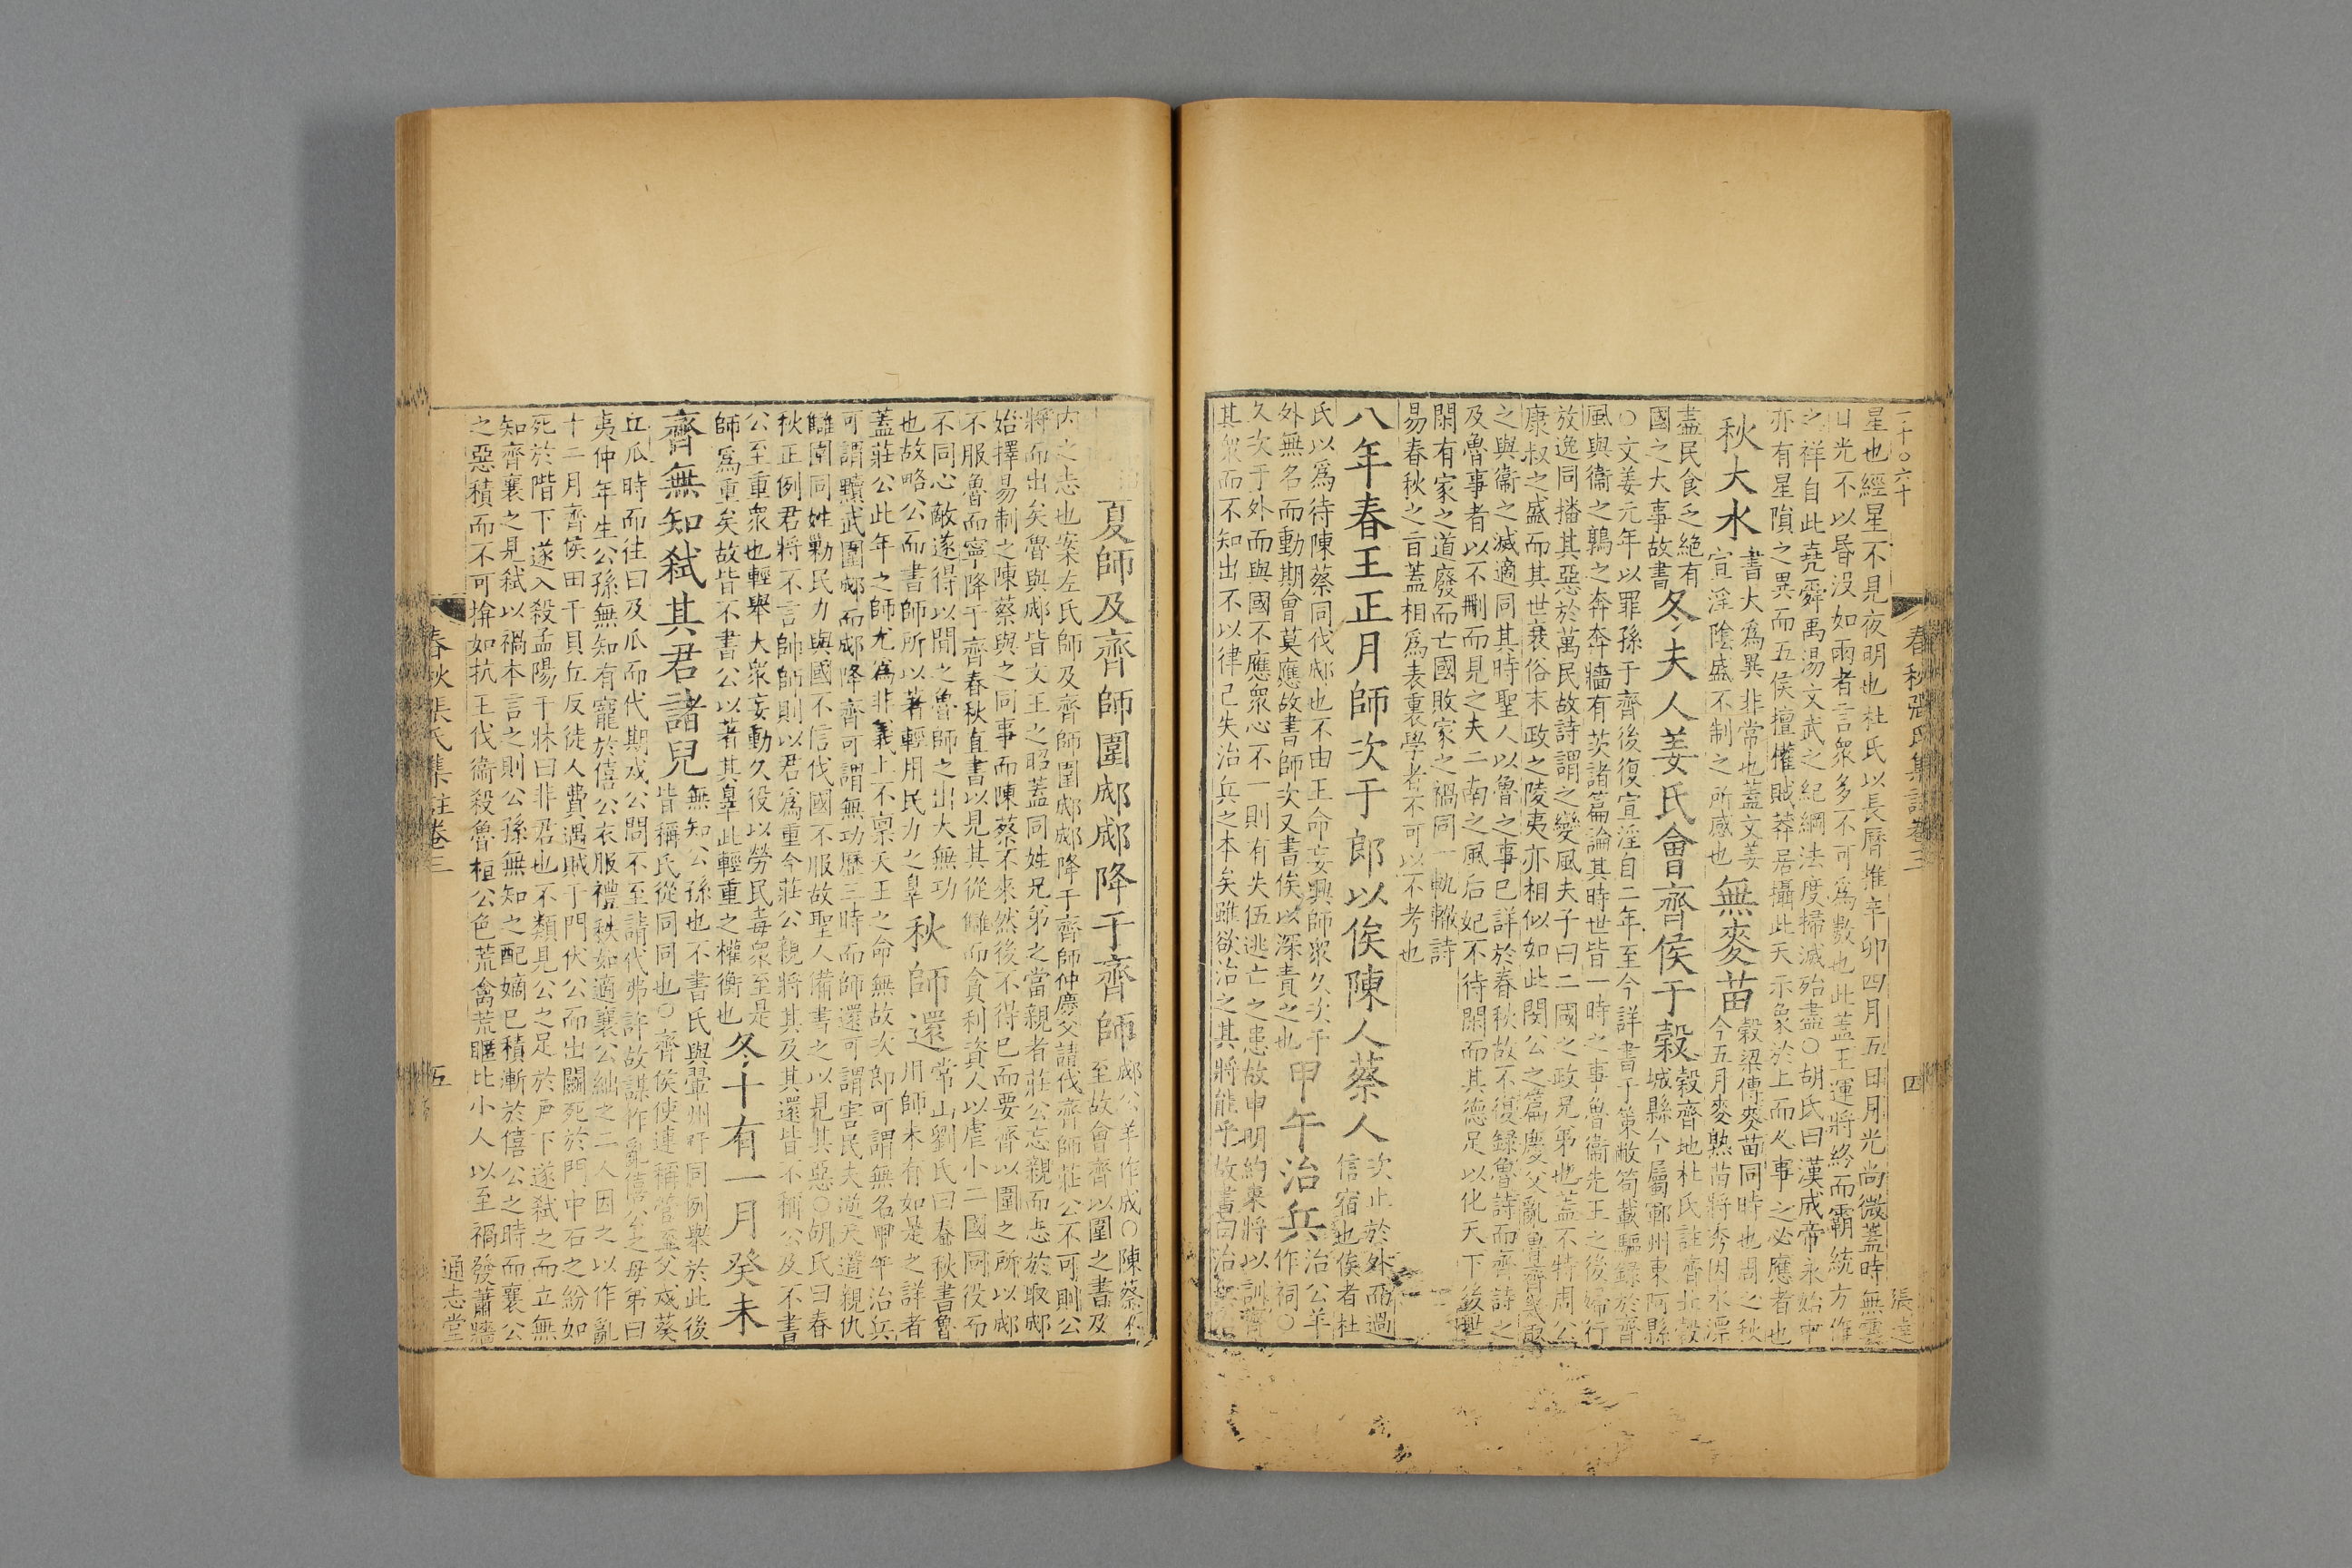 二十〇六十
春秋張氏集註卷三
四
張達
星也經星不見夜明也杜氏以長曆推辛卯四月五日月光尚微蓋時無雲
日光不以昬没如雨者言衆多不可爲數也此蓋王運將終而霸統方作
之祥自此堯舜禹湯文武之紀綱法度掃滅殆盡〇胡氏曰漢成帝永始中
亦有星隕之異而五侯擅權賊莽居攝此天示象於上而人事之必應者也
秋大水書大爲異非常也蓋文姜宣淫陰盛不制之所感也無麥苗穀梁傳麥苗同時也周之秋今五月麥熟苗將秀因水漂
盡民食乏絶有國之大事故書冬夫人姜氏會齊侯于穀穀齊地杜氏註齊北穀城縣今屬鄆州東阿縣
〇文姜元年以罪孫于齊後復宣淫自二年至今詳書于策敝笱載驅録於齊
風與衞之鶉之奔奔牆有茨諸篇論其時世皆一時之事魯衞先王之後婦行
放逸同播其惡於萬民故詩謂之變風夫子曰二國之政兄弟也蓋不特周公
康叔之盛而其世衰俗末政之陵夷亦相似如此閔公之篇慶父亂魯齊幾取
之與衞之滅適同其時聖人以魯之事已詳於春秋故不復録魯詩而齊詩之
及魯事者以不刪而見之夫二南之風后妃不待閑而其德足以化天下後世
閑有家之道廢而亡國敗家之禍同一軌轍詩
易春秋之言蓋相爲表裏學者不可以不考也
八年春王正月師次于郎以俟陳人蔡人次止於外而過信宿也俟者杜
氏以爲待陳蔡同伐郕也不由王命妄興師衆久次于
外無名而動期會莫應故書師次又書俟以深責之也甲午治兵治公羊作祠〇
久次于外而與國不應衆心不一則有失伍逃亡之患故申明約束將以訓齊
其衆而不知出不以律已失治兵之本矣雖欲治之其將能乎故書曰治兵
夏師及齊師圍郕郕降于齊師郕公羊作成〇陳蔡不至故會齊以圍之書及
内之志也案左氏師及齊師圍郕郕降于齊師仲慶父請伐齊師莊公不可則公
將而出矣魯與郕皆文王之昭蓋同姓兄弟之當親者莊公忘親而志於取郕
始擇易制之陳蔡與之同事而陳蔡不來然後不得已而要齊以圍之所以郕
不服魯而寧降于齊春秋直書以見其從讎而貪利資人以虐小二國同役而
不同心敵遂得以間之魯師之出大無功
也故略公而書師所以著輕用民力之辠秋師還常山劉氏曰春秋書魯用師未有如是之詳者
蓋莊公此年之師尤爲非義上不禀天王之命無故次郎可謂無名甲午治兵
可謂黷武圍郕而郕降齊可謂無功歷三時而師還可謂害民夫逆天道親仇
讎圍同姓勦民力與國不信伐國不服故聖人備書之以見其惡〇胡氏曰春
秋正例君將不言帥師則以君爲重今莊公親將其及其還皆不稱公及不書
公至重衆也輕舉大衆妄動久役以勞民毒衆至是
師爲重矣故皆不書公以著其辠此輕重之權衡也冬十有一月癸未
齊無知弑其君諸兒無知公孫也不書氏與翬州吁同例舉於此後皆稱氏從同同也〇齊侯使連稱管至父戍葵
丘瓜時而往曰及瓜而代期戍公問不至請代弗許故謀作亂僖公之母弟曰
夷仲年生公孫無知有寵於僖公衣服禮秩如適襄公絀之二人因之以作亂
十二月齊侯田于貝丘反徒人費遇賊于門伏公而出鬬死於門中石之紛如
死於階下遂入殺孟陽于牀曰非君也不類見公之足於戸下遂弑之而立無
知齊襄之見弑以禍本言之則公孫無知之配嫡已積漸於僖公之時而襄公
之惡積而不可揜如抗王伐衞殺魯桓公色荒禽荒暱比小人以至禍發蕭牆
春秋張氏集註卷三
五
通志堂